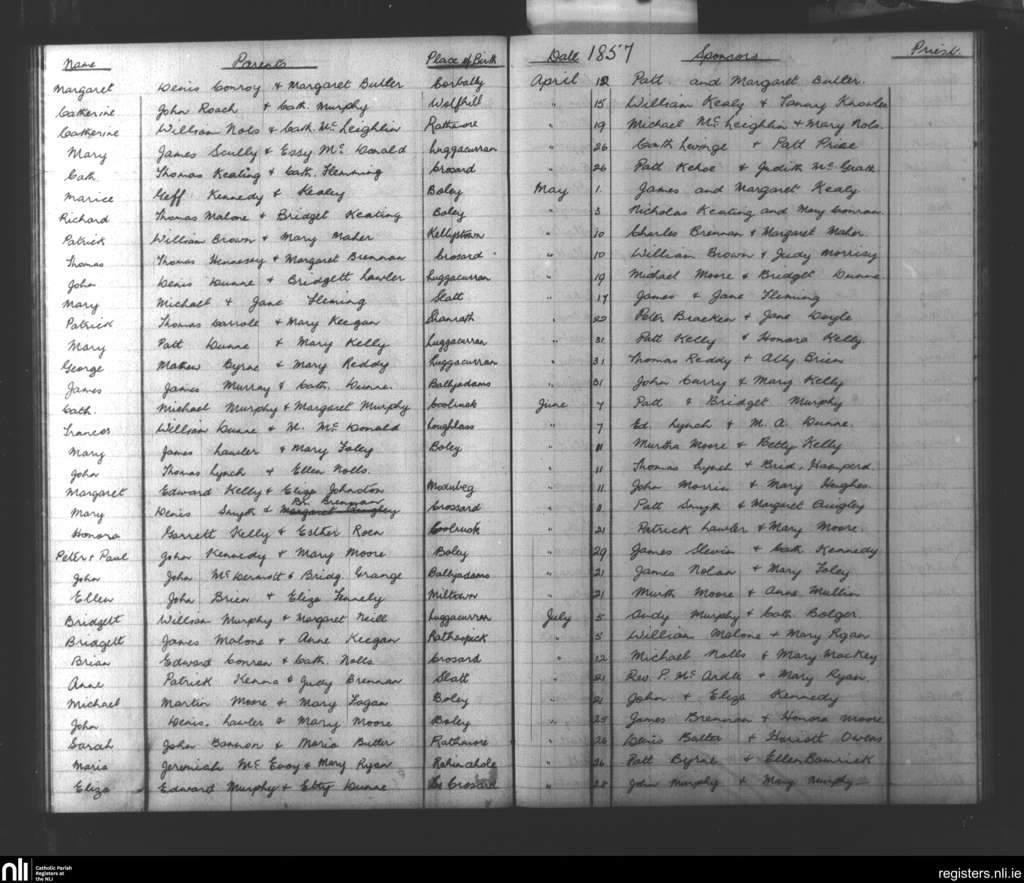 Name Parents Place of Birth Date 1857 Sponsors Priest
Margaret Denis Conroy & Margaret Butler Corbally April 12 Patt and Margaret Butler.
Catherine John Roach & Cath. Murphy Wolfhill " 15 William Kealy & Fanny Knowles
Catherine William Nols & Cath. McLeighlin Rathmore " 19 Michael McLeighlin & Mary Nols.
Mary James Scully & Essy McDonald Luggacurran " 26 & Patt Price
Cath. Thomas Keating & Cath. Flemming Crosard " 26 Patt Kehoe & Judith McGrath
Marice Geff Kennedy & Kealey Boley May 1. James and Margaret Kealy
Richard Thomas Malone & Bridget Keating Boley " 3 Nicholas Keating and Mary Conran.
Patrick William Brown & Mary Maher Kellystown " 10 Charles Brennan & Margaret Maher.
Thomas Thomas Hennessy & Margaret Brennan Crosard " 10 William Brown & Judy Morrisy
John Denis Dunne & Bridgett Lawler Luggacurran " 19 Michael Moore & Bridget Dunne
Mary Michael & Jane Fleming Slatt " 17 James & Jane Fleming
Patrick Thomas Carrole & Mary Keegan Shanrath " 22 Peter Bracken & Jane Doyle
Mary Patt Dunne & Mary Kelly Luggacurran " 31 Patt Kelly & Honora Kelly
George Mathew Byrne & Mary Reddy Luggacurran " 31 Thomas Reddy & Ally Brien
James James Murray & Cath. Dunne. Ballyadams " 31 John Curry & Mary Kelly
Cath. Michael Murphy & Margaret Murphy Coolruck June 7 Patt & Bridget Murphy
Frances William Dunne & M. McDonald Loughlass " 7 Ed. Lynch & M. A. Dunne.
Mary James Lawler & Mary Foley Boley " 11 Murtha Moore & Betty Kelly
John Thomas Lynch & Ellen Nolls. " 11 Thomas Lynch & Brid. Hamperd.
Margaret Edward Kelly & Eliza Johnston Modubeg " 11 John Morrin & Mary Hughes.
Br. Brennan
Mary Denis Smyth & Margaret Quigley Crossard " 11 Patt Smyth & Margaret Quigley
Honora Garrett Kelly & Esther Roen Coolruck " 21 Patrick Lawler & Mary Moore.
Peter & Paul John Kennedy & Mary Moore Boley " 29 James Slevin & Cath Kennedy
John John McDermott & Bridg. Grange Ballyadams " 21 James Nolan & Mary Foley
Ellen John Brien & Eliza Fennely Miltown " 21 Murth Moore & Anne Mullin
Bridgett William Murphy & Margaret Neill Luggacurran July 5 Andy Murphy & Cath Bolger.
Bridgett James Malone & Anne Keegan Rathaspick " 5 William Malone & Mary Ryan
Brian Edward Conran & Cath. Nolls Crosard " 12 Michael Nolls & Mary Mackey
Anne Patrick Kenna & Judy Brennan Slatt " 21 Rev. P. McArdle & Mary Ryan.
Michael Martin Moore & Mary Fagan Boley " 21 John & Eliza Kennedy
John Denis. Lawler & Mary Moore Boley " 25 James Brennan & Honora Moore
Sarah John Bannon & Maria Butler Rathmore " 26 Denis Butler & Hariott Owens
Maria Jeremiah McEvoy & Mary Ryan Rahinahole " 26 Patt Byrne & Ellen Bamrick
Eliza Edward Murphy & Etty Dunne Crosard " 28 John Murphy & Mary Murphy
nli Catholic Parish Registers at the NLI
registers.nli.ie